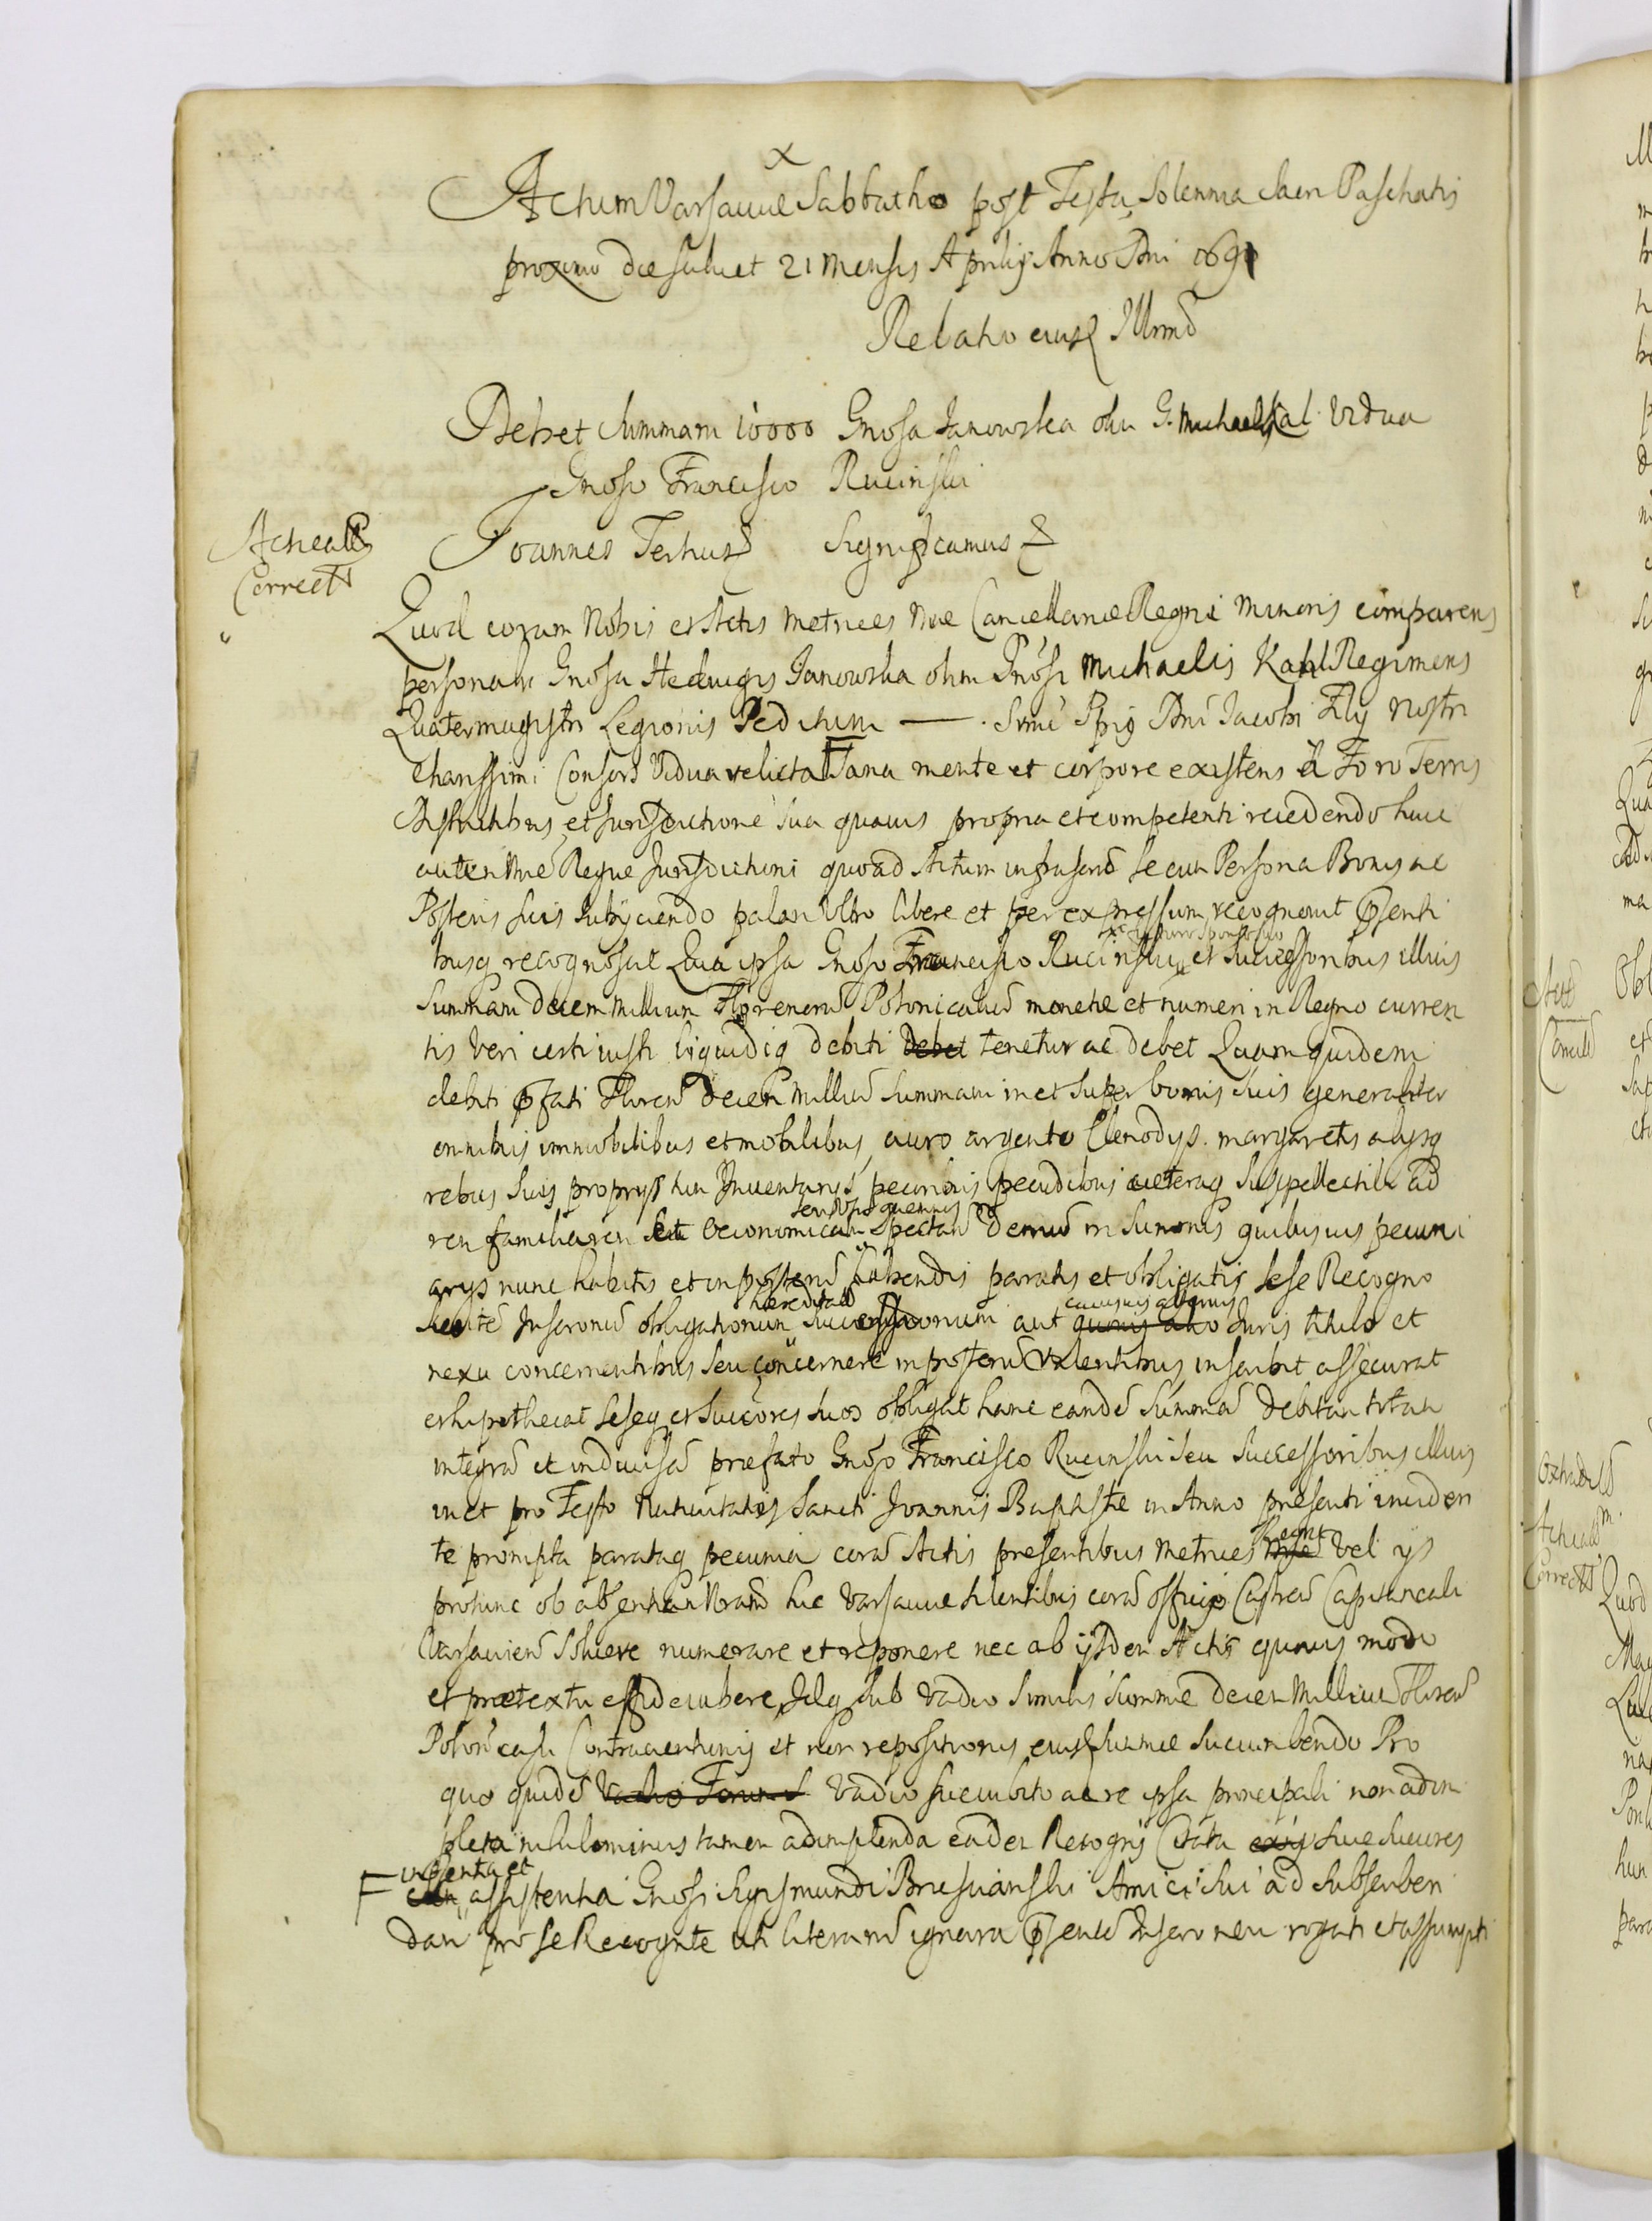 Actum Varsaviæ Sabbatho post Festa Solennia Sacri Paschatis
proximo die scilicet 21 Mensis Aprilis Anno Dni 1691
Relatio eiusd Illrmd
Debet summam 10000 Gnosa Janowska olim G. Michael Kal Vidua
Gnoso Francisco Rucinski
Joannes Tertius Significamus &
Quod coram Nobis et Actis Metrices Nræ Cancellariæ Regni Minoris comparens
personalr Gnosa Hedvigis Janowska olim Gnosi Michaelis Kahl Regimens
Quatermagistri Legionis Peditum — . Srmi Prpis Dni Jacobi Filij Nostri
Charissimi Consors Vidua relicta Sana mente et corpore existens à Foro Terris
Districtibus et Jurisdictione sua quavis propria et competenti recedendo huic
autem Nræ Regiæ Jurisdictioni quoad Actum infrascrm se cum Persona Bonis ac
Posteris suis subijciendo palam Ultro libere et per expressum recognovit Psenti
busq recognoscit Quia ipsa Gnoso Francisco Rucinski et Successoribus illius
Summam decem millium Florenorum Polonicalium monetæ et numeri in Regno curren
tis Veri certi iusti liquidiq debiti Debet tenetur ac debet Quam quidem
debiti Pfati Floren decem millium Summam in et super bonis suis generaliter
omnibus immobilibus et mobilibus, auro argento Clenodys margaretis alysq
rebus suis proprys tum Inventarys pecoribus pecudibus cæteraq Suppellectili ad
seu Usq quemvis
rem familiarem seu Oeconomicam Spectan Demum in Summis quibusvis pecuni
arys nunc habitis et in posterum habendis paratis et obligatis sese Recogno
hæreditar cuiusvis alterius
scente Inscronum obligationum Successionum aut quovis alio Juris titulo et
nexu concernentibus seu concernere in posterum Valentibus, inscribit assecurat
et hipothecat Seseq et Succores suos obligat hanc eandem Summam debitam totam
integram et indivisam præfato Gnoso Francisco Rucinski seu Successoribus illius
in et pro Festo Nativitatis Sancti Joannis Baptistæ in Anno presenti inciden
Regni
te prompta parataq pecunia coram Actis presentibus Metrices vel ijs
protunc ob absentiam Nram hic Varsaviæ silentibus coram officio Castren Capitaneali
Varsavien Solvere numerare et reponere nec ab ijsdem Actis quovis modo
et prætextu effidecubere, Idq sub Vadio similis Summæ decem Millium Floren
Polon casu Contraventionis et non repositionis eiusd Summæ succumbendo Pro
quo quidem Vadio Vadio succubito ac re ipsa principali non adim
pleta nihilominus tamen adimplenda eadem Recogns Citata suæ Succores
in Psentia et
assistentia Gnosi Sigismundi Amici sui ad Subscriben
dam pro se Recognte uti literarum ignara Psentem Inscronem rogati et assumpti
Acticall
Correct